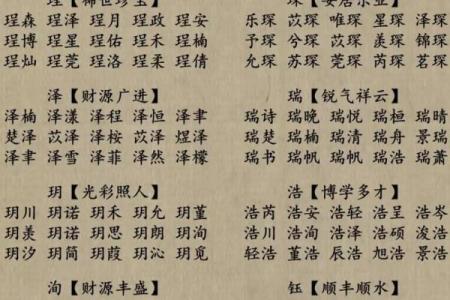 珵【稀世珍宝】
珵森 珵泽 珵月 珵政 珵安
珵博 珵星 珵佑 珵禾 珵楠
珵灿 珵莞 珵洛 珵柔 珵倩
琛【安居乐业】
雅琛 苡琛 唯琛 星琛 泽琛
予琛 兮琛 苡琛 羡琛 锦琛
允琛 苏琛 莞琛 芮琛 茗琛
泽【财源广进】
泽楠 泽漾 泽程 泽恒 泽聿
楚泽 苎泽 泽桉 苡泽 煜泽
泽聿 泽雪 泽菲 泽然 泽檬
瑞【锐气祥云】
瑞诗 瑞晚 瑞悦 瑞桓 瑞晴
瑞楚 瑞楠 瑞清 瑞舟 景瑞
瑞书 瑞帆 瑞帆 瑞浩 瑞萧
玥【光彩照人】
玥川 玥诺 玥禾 玥允 玥堇
玥羡 玥诺 玥思 玥朗 玥洵
玥汐 玥简 玥葭 玥沁 玥觅
浩【博学多才】
浩芮 浩安 浩轻 浩呈 浩岑
浩沁 浩洵 浩泽 浩硕 浚浩
轻浩 董浩 辰浩 旭浩 景浩
洵【财源丰盛】
钰【顺丰顺水】